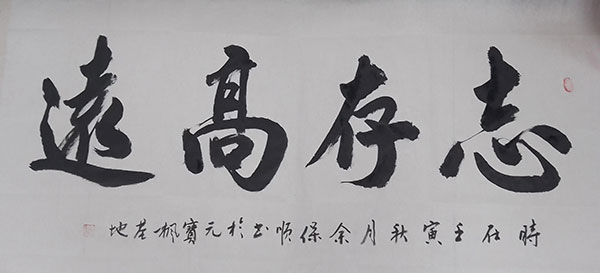 志存高遠
時在壬寅秋月余保順书於元寶楓花地